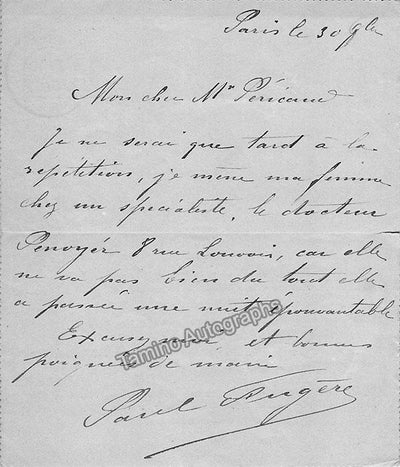 Paris le 30 9bre
Mon cher Mr Péricaud
Je ne serai que tard à la
répétition, je mène ma femme
chez un spécialiste, le docteur
Penoyér 8 rue Louvois, car elle
ne va pas bien du tout elle
a passée une nuit épouvantable
Excusez moi et bonnes
poignées de main
Paul Fugère
Tamino Autographs